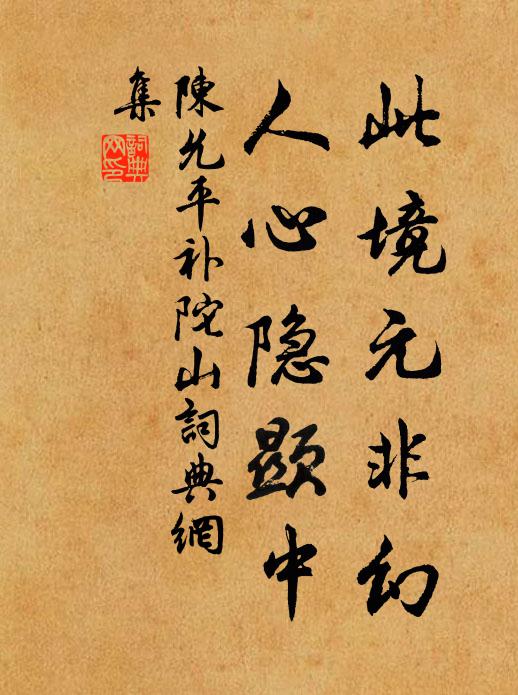 此境元非幻
人心隐顯中
陳允平补陀山詞典網
集
詞典
网印